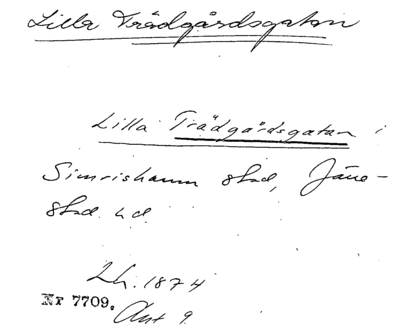 Lilla Trädgårdsgatan
Lilla Trädgårdsgatan i
Simrishamn stad, Järre-
stad hd.
Lh. 1874
Nr 7709.
Ant 9.